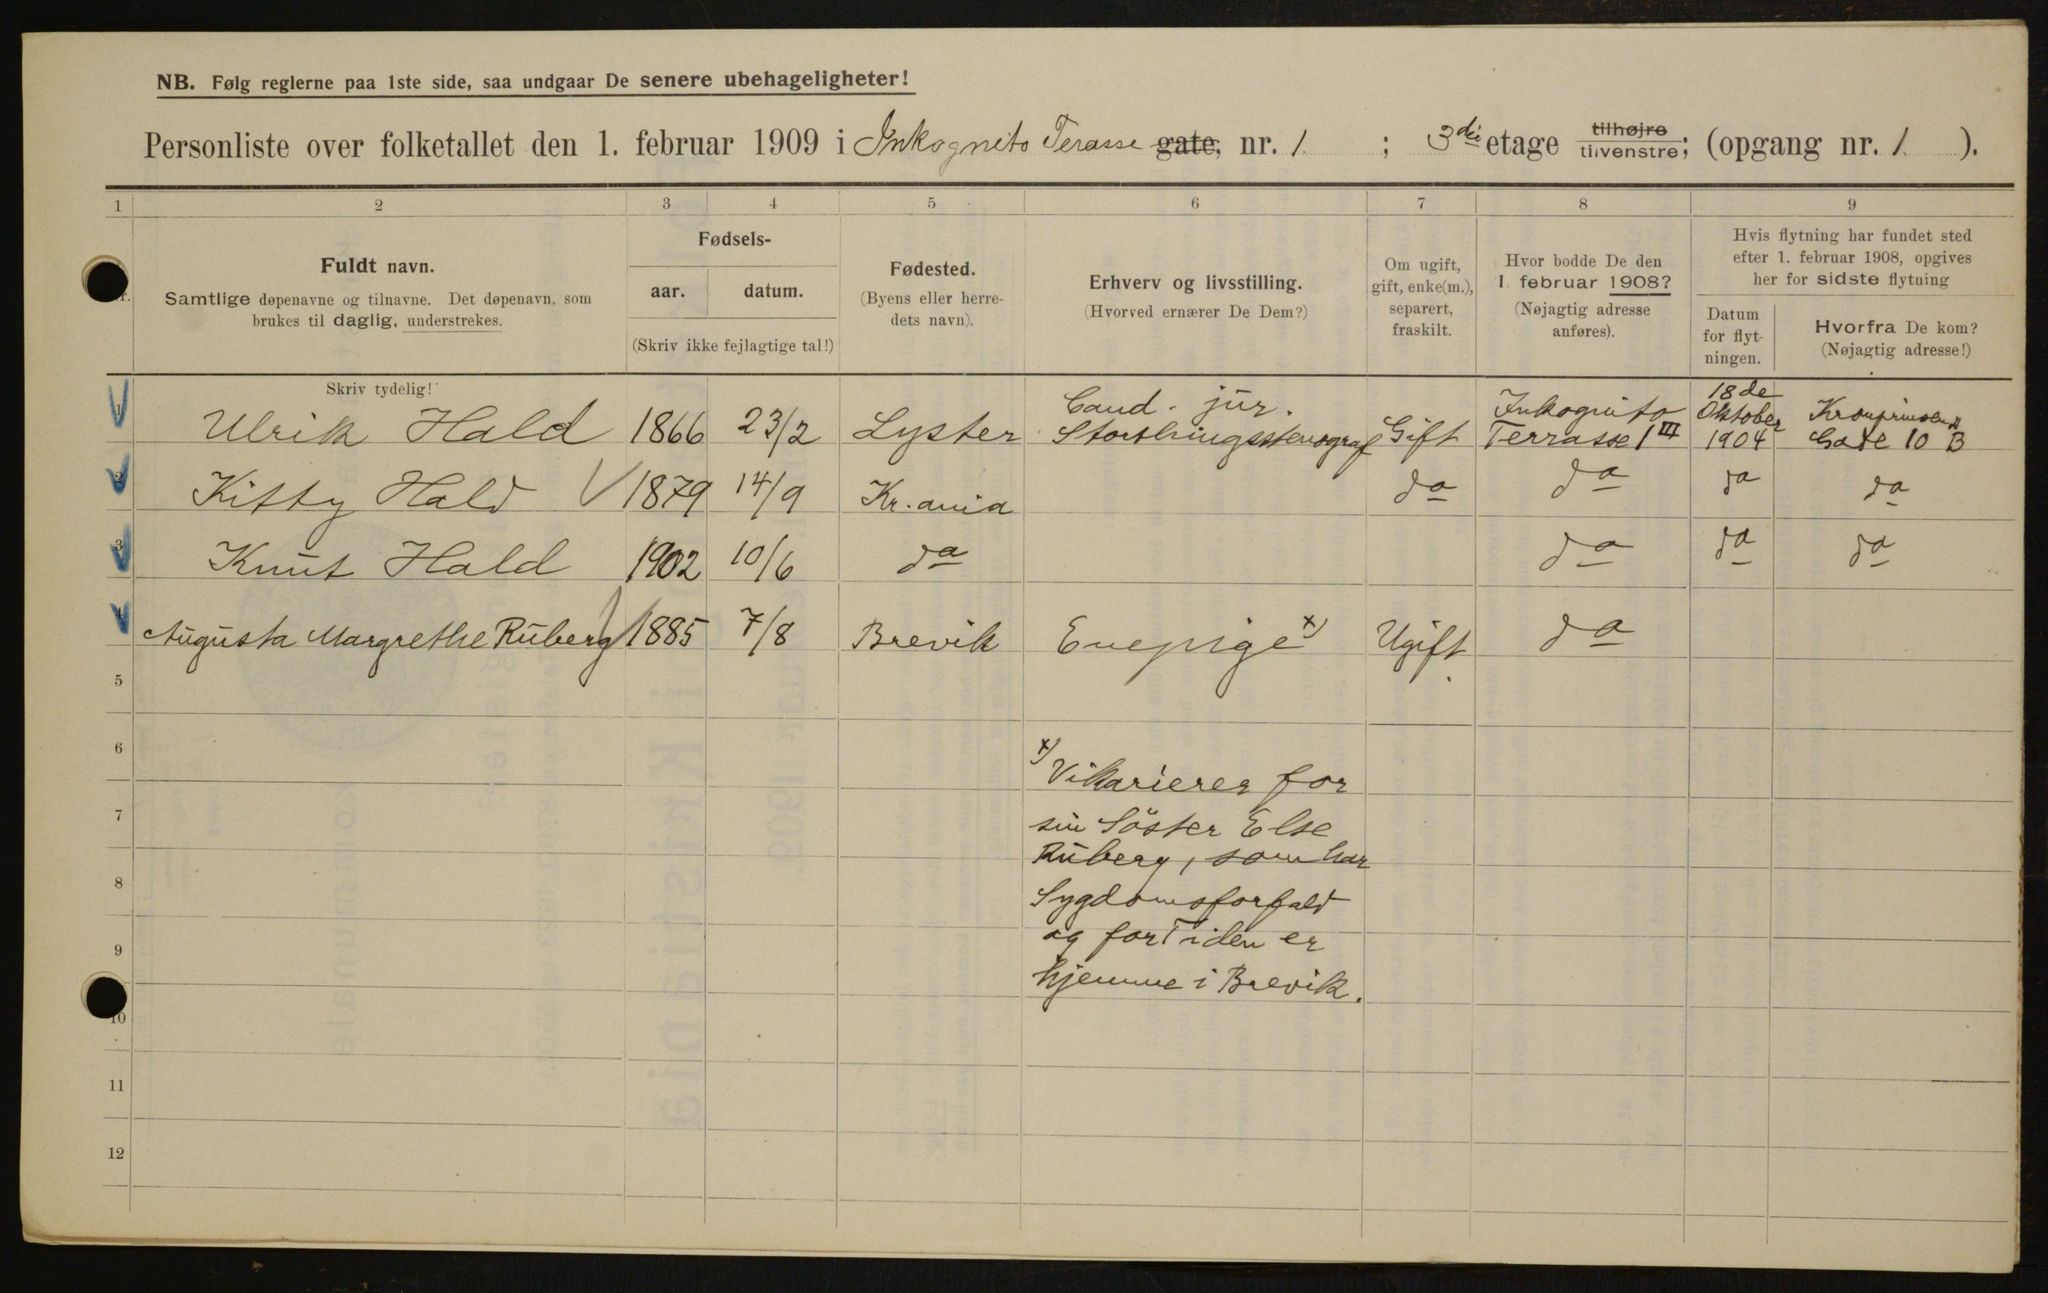 NB. Følg reglerne paa 1ste side, saa undgaar De senere ubehageligheter!
Personliste over folketallet den 1. februar 1909 i Inkognito Terasse gate, nr. 1 ; 3die etage tilhøjre tilvenstre; (opgang nr. 1. ).
1 2 3 4 5 6 7 8 9
Fuldt navn.
Samtlige døpenavne og tilnavne. Det døpenavn, som
brukes til daglig, understrekes.
Skriv tydelig!
Fødsels-
aar. datum.
(Skriv ikke fejlagtige tal!)
Fødested.
(Byens eller herre-
dets navn).
Erhverv og livsstilling.
(Hvorved ernærer De Dem?)
Om ugift,
gift, enke(m.),
separert,
fraskilt.
Hvor bodde De den
1. februar 1908?
(Nøjagtig adresse
anføres).
Hvis flytning har fundet sted
efter 1. februar 1908, opgives
her for sidste flytning
Datum
for flyt-
ningen.
Hvorfra De kom?
(Nøjagtig adresse!)
1 Ulrik Hald 1866 23/2 Lyster Cand. jur. Storthingsstenograf Gift Inkognito Terrasse 1 III 18de Oktober 1904 Kronprinsens Gate 10 B
2 Kitty Hald 1879 14/9 Kr.ania do do do do
3 Knut Hald 1902 10/6 do do do do
4 Augusta Margrethe Ruberg 1885 7/8 Brevik Enepige x) Ugift do
5
6
x) Vikarierer for
7
sin Söster Else
Ruberg, som har
8
Sygdomsforfald
og for Tiden er
9
hjemme i Brevik.
10
11
12